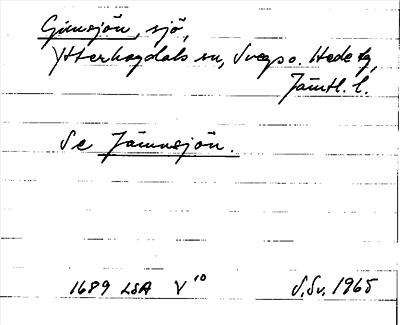 Gimsjön, sjö,
Ytterhogdals sn, Svegs o. Hede tg,
Jämtl. l.
Se Jämnsjön.
1689 LSA V¹⁰ S.Sv. 1965